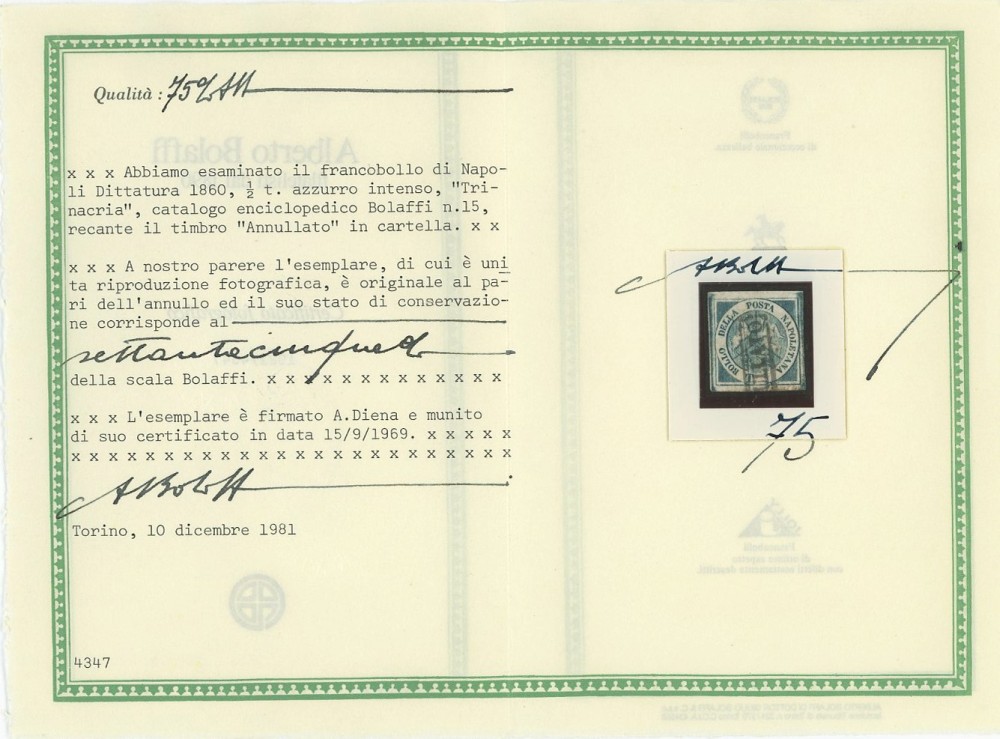 Qualità : 75%
x x x Abbiamo esaminato il francobollo di Napo-
li Dittatura 1860, ½ t. azzurro intenso, "Tri-
nacria", catalogo enciclopedico Bolaffi n.15,
recante il timbro "Annullato" in cartella. x x
x x x A nostro parere l'esemplare, di cui è uni
ta riproduzione fotografica, è originale al pa-
ri dell'annullo ed il suo stato di conservazio-
ne corrisponde al
settantacinque%
della scala Bolaffi. x x x x x x x x x x x x x
x x x L'esemplare è firmato A.Diena e munito
di suo certificato in data 15/9/1969. x x x x x
x x x x x x x x x x x x x x x x x x x x x x x x
ABolaffi
Torino, 10 dicembre 1981
4347
ABolaffi
BOLLO DELLA POSTA NAPOLETANA
75
Alberto Bolaffi